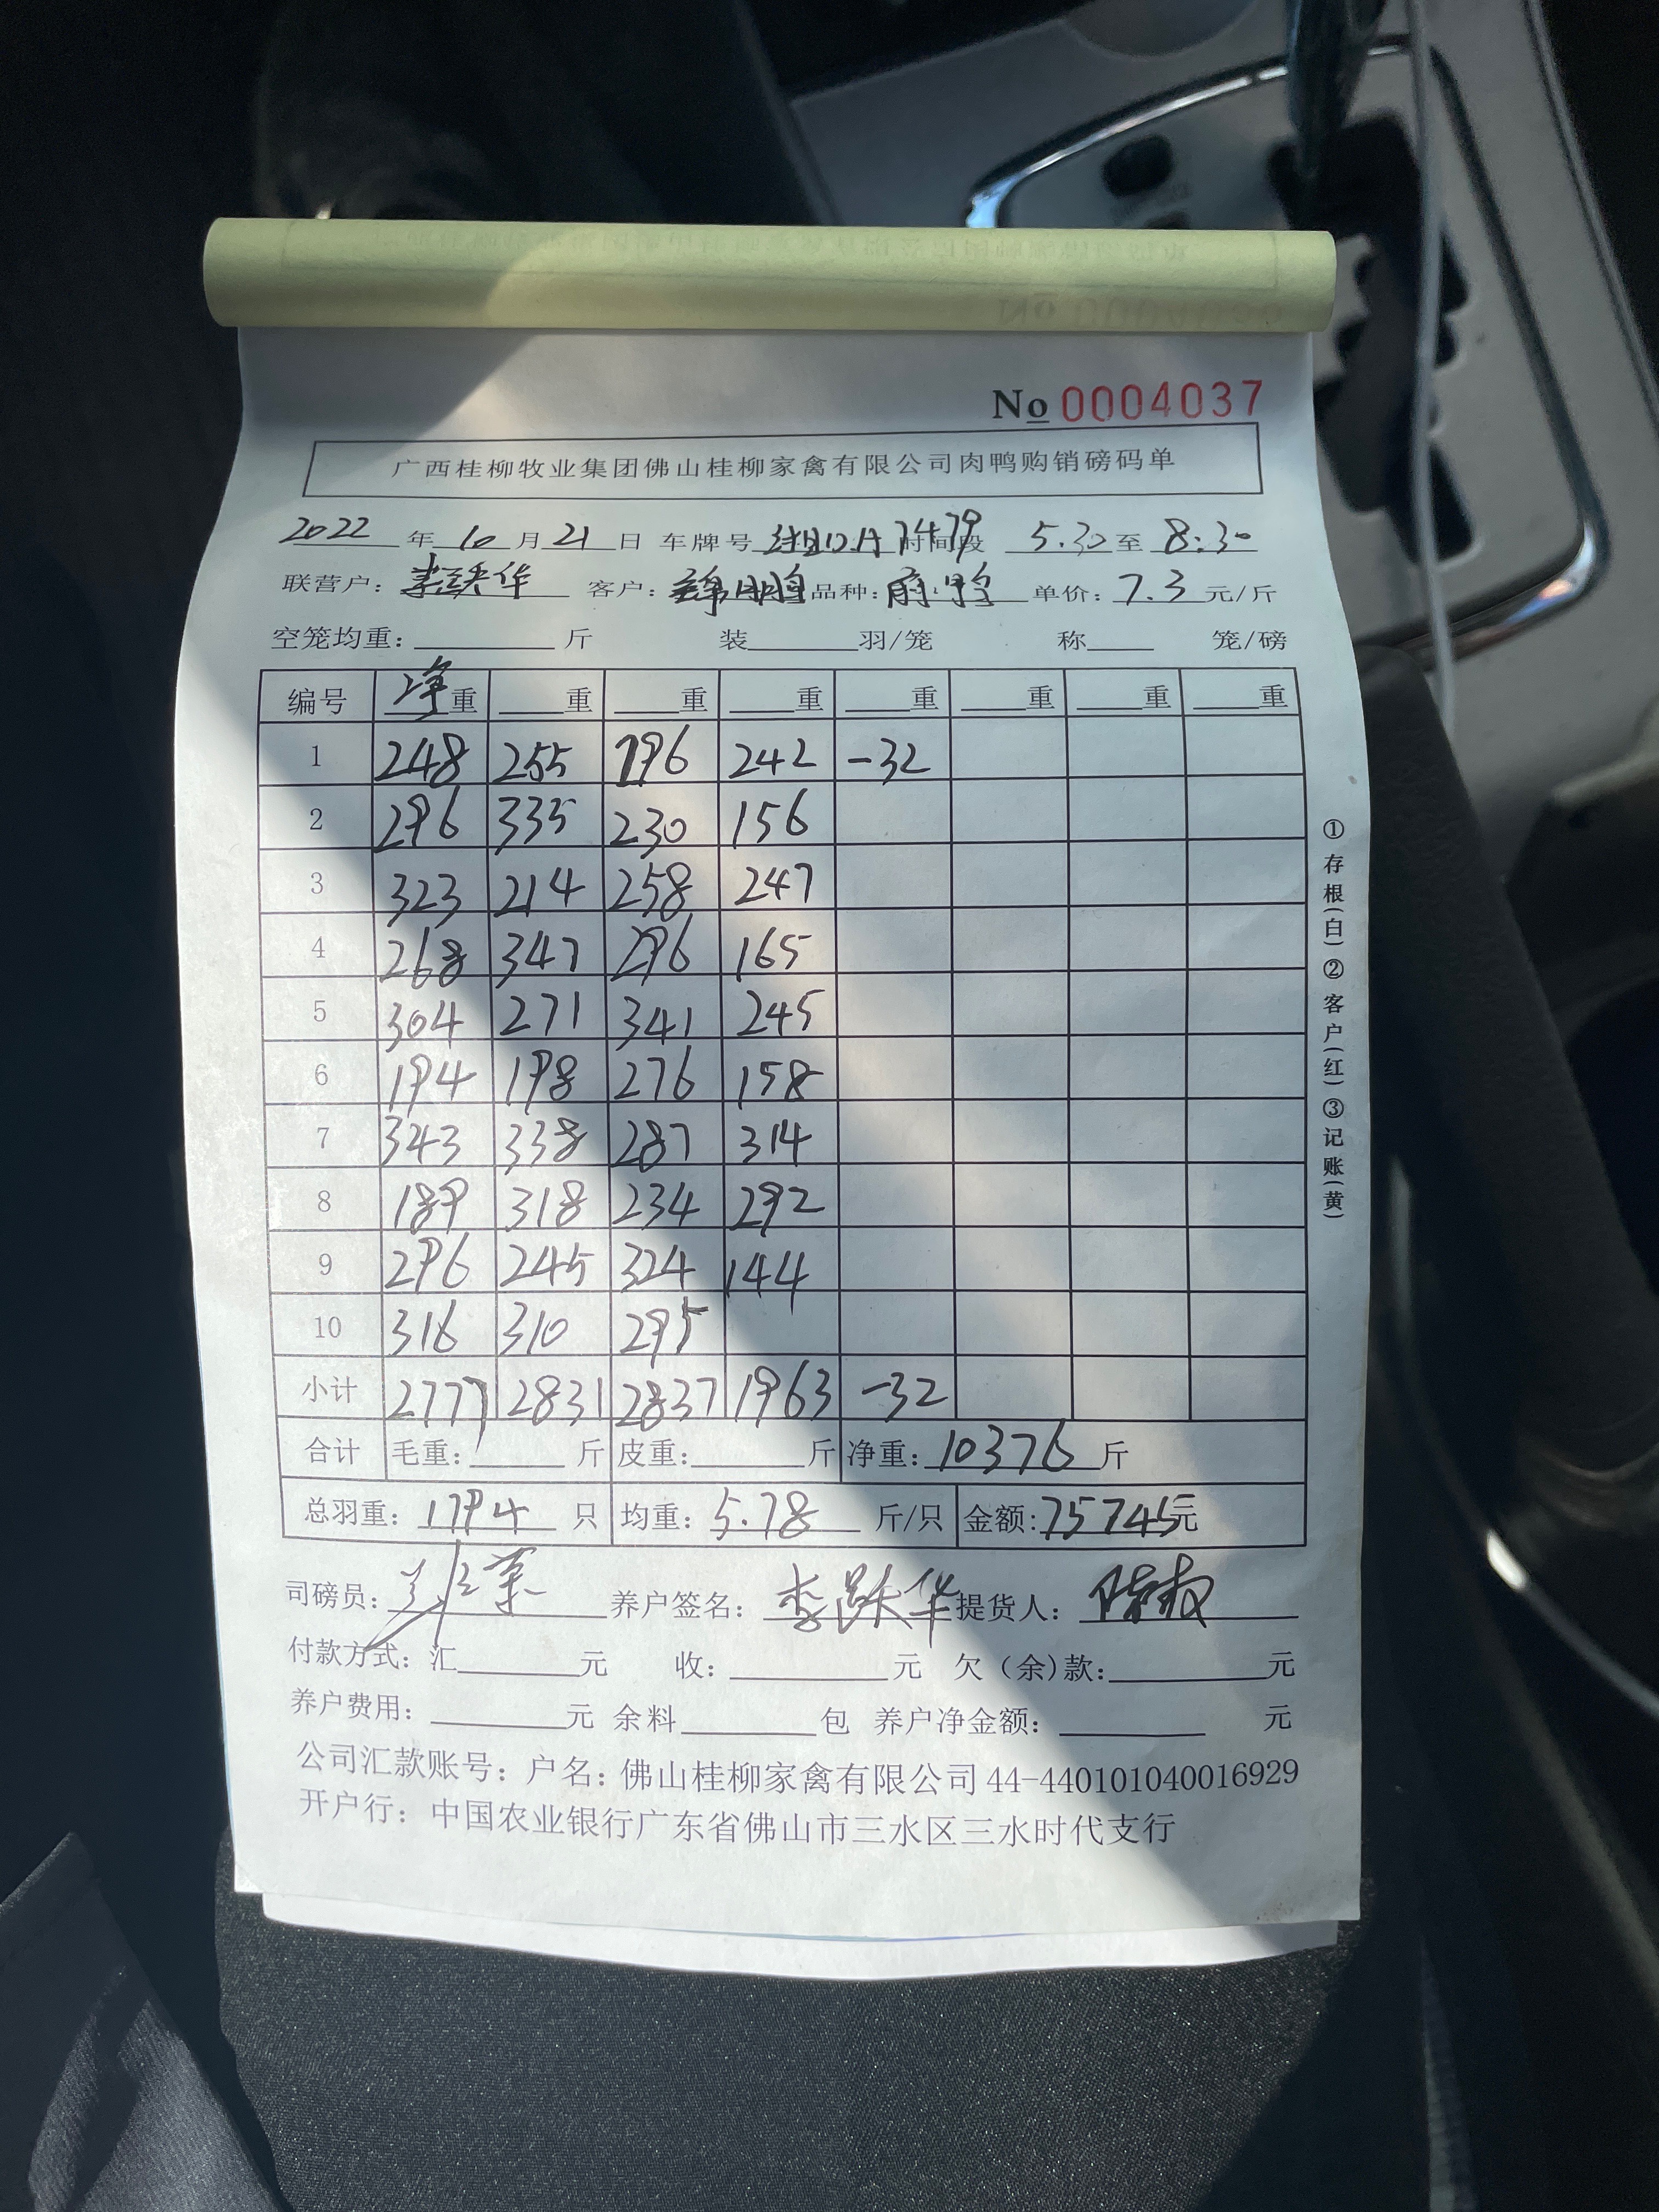 No 0004037
广西桂柳牧业集团佛山桂柳家禽有限公司肉鸭购销磅码单
2022 年 10 月 21 日 车牌号 7479 时间段 5.30 至 8:30
联营户: 李跃华 客户: 品种: 单价: 7.3 元/斤
空笼均重: 斤 装 羽/笼 称 笼/磅
编号 净重 重 重 重 重 重 重 重
1 248 255 196 242 -32
2 296 335 230 156
3 323 214 258 247
4 268 347 296 165
5 304 271 341 245
6 194 198 276 158
7 343 338 287 314
8 189 318 234 292
9 296 245 324 144
10 316 310 295
小计 2777 2831 2837 1963 -32
合计 毛重: 斤 皮重: 斤 净重: 10376 斤
总羽重: 1794 只 均重: 5.78 斤/只 金额: 75745元
司磅员: 养户签名: 李跃华 提货人:
付款方式: 汇 元 收: 元 欠(余)款: 元
养户费用: 元 余料 包 养户净金额: 元
公司汇款账号: 户名: 佛山桂柳家禽有限公司 44-440101040016929
开户行: 中国农业银行广东省佛山市三水区三水时代支行
①存根(白)②客户(红)③记账(黄)